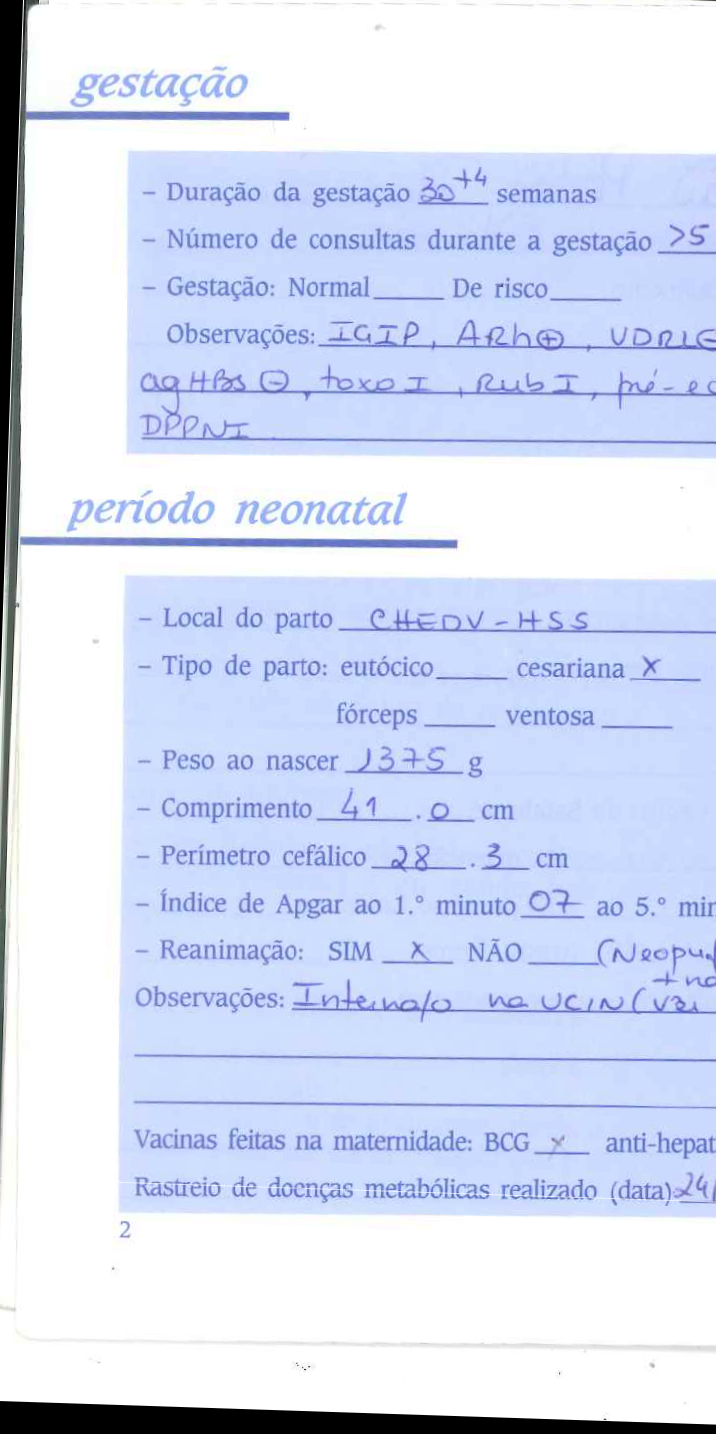 gestação
– Duração da gestação 30+4 semanas
– Número de consultas durante a gestação >5
– Gestação: Normal_____ De risco_____
Observações: IGIP, ARh⊕, VDRL⊖
agHBs ⊖, toxo I, Rub I, pré-ec
DPPNI
período neonatal
– Local do parto CHEDV - HSS
– Tipo de parto: eutócico_____ cesariana X
fórceps _____ ventosa _____
– Peso ao nascer 1375 g
– Comprimento 41.0 cm
– Perímetro cefálico 28.3 cm
– Índice de Apgar ao 1.º minuto 07 ao 5.º min
– Reanimação: SIM X NÃO _____ (Neopu
+ na
Observações: Interna/o na UCIN (
Vacinas feitas na maternidade: BCG x anti-hepat
Rastreio de doenças metabólicas realizado (data) 24/
2